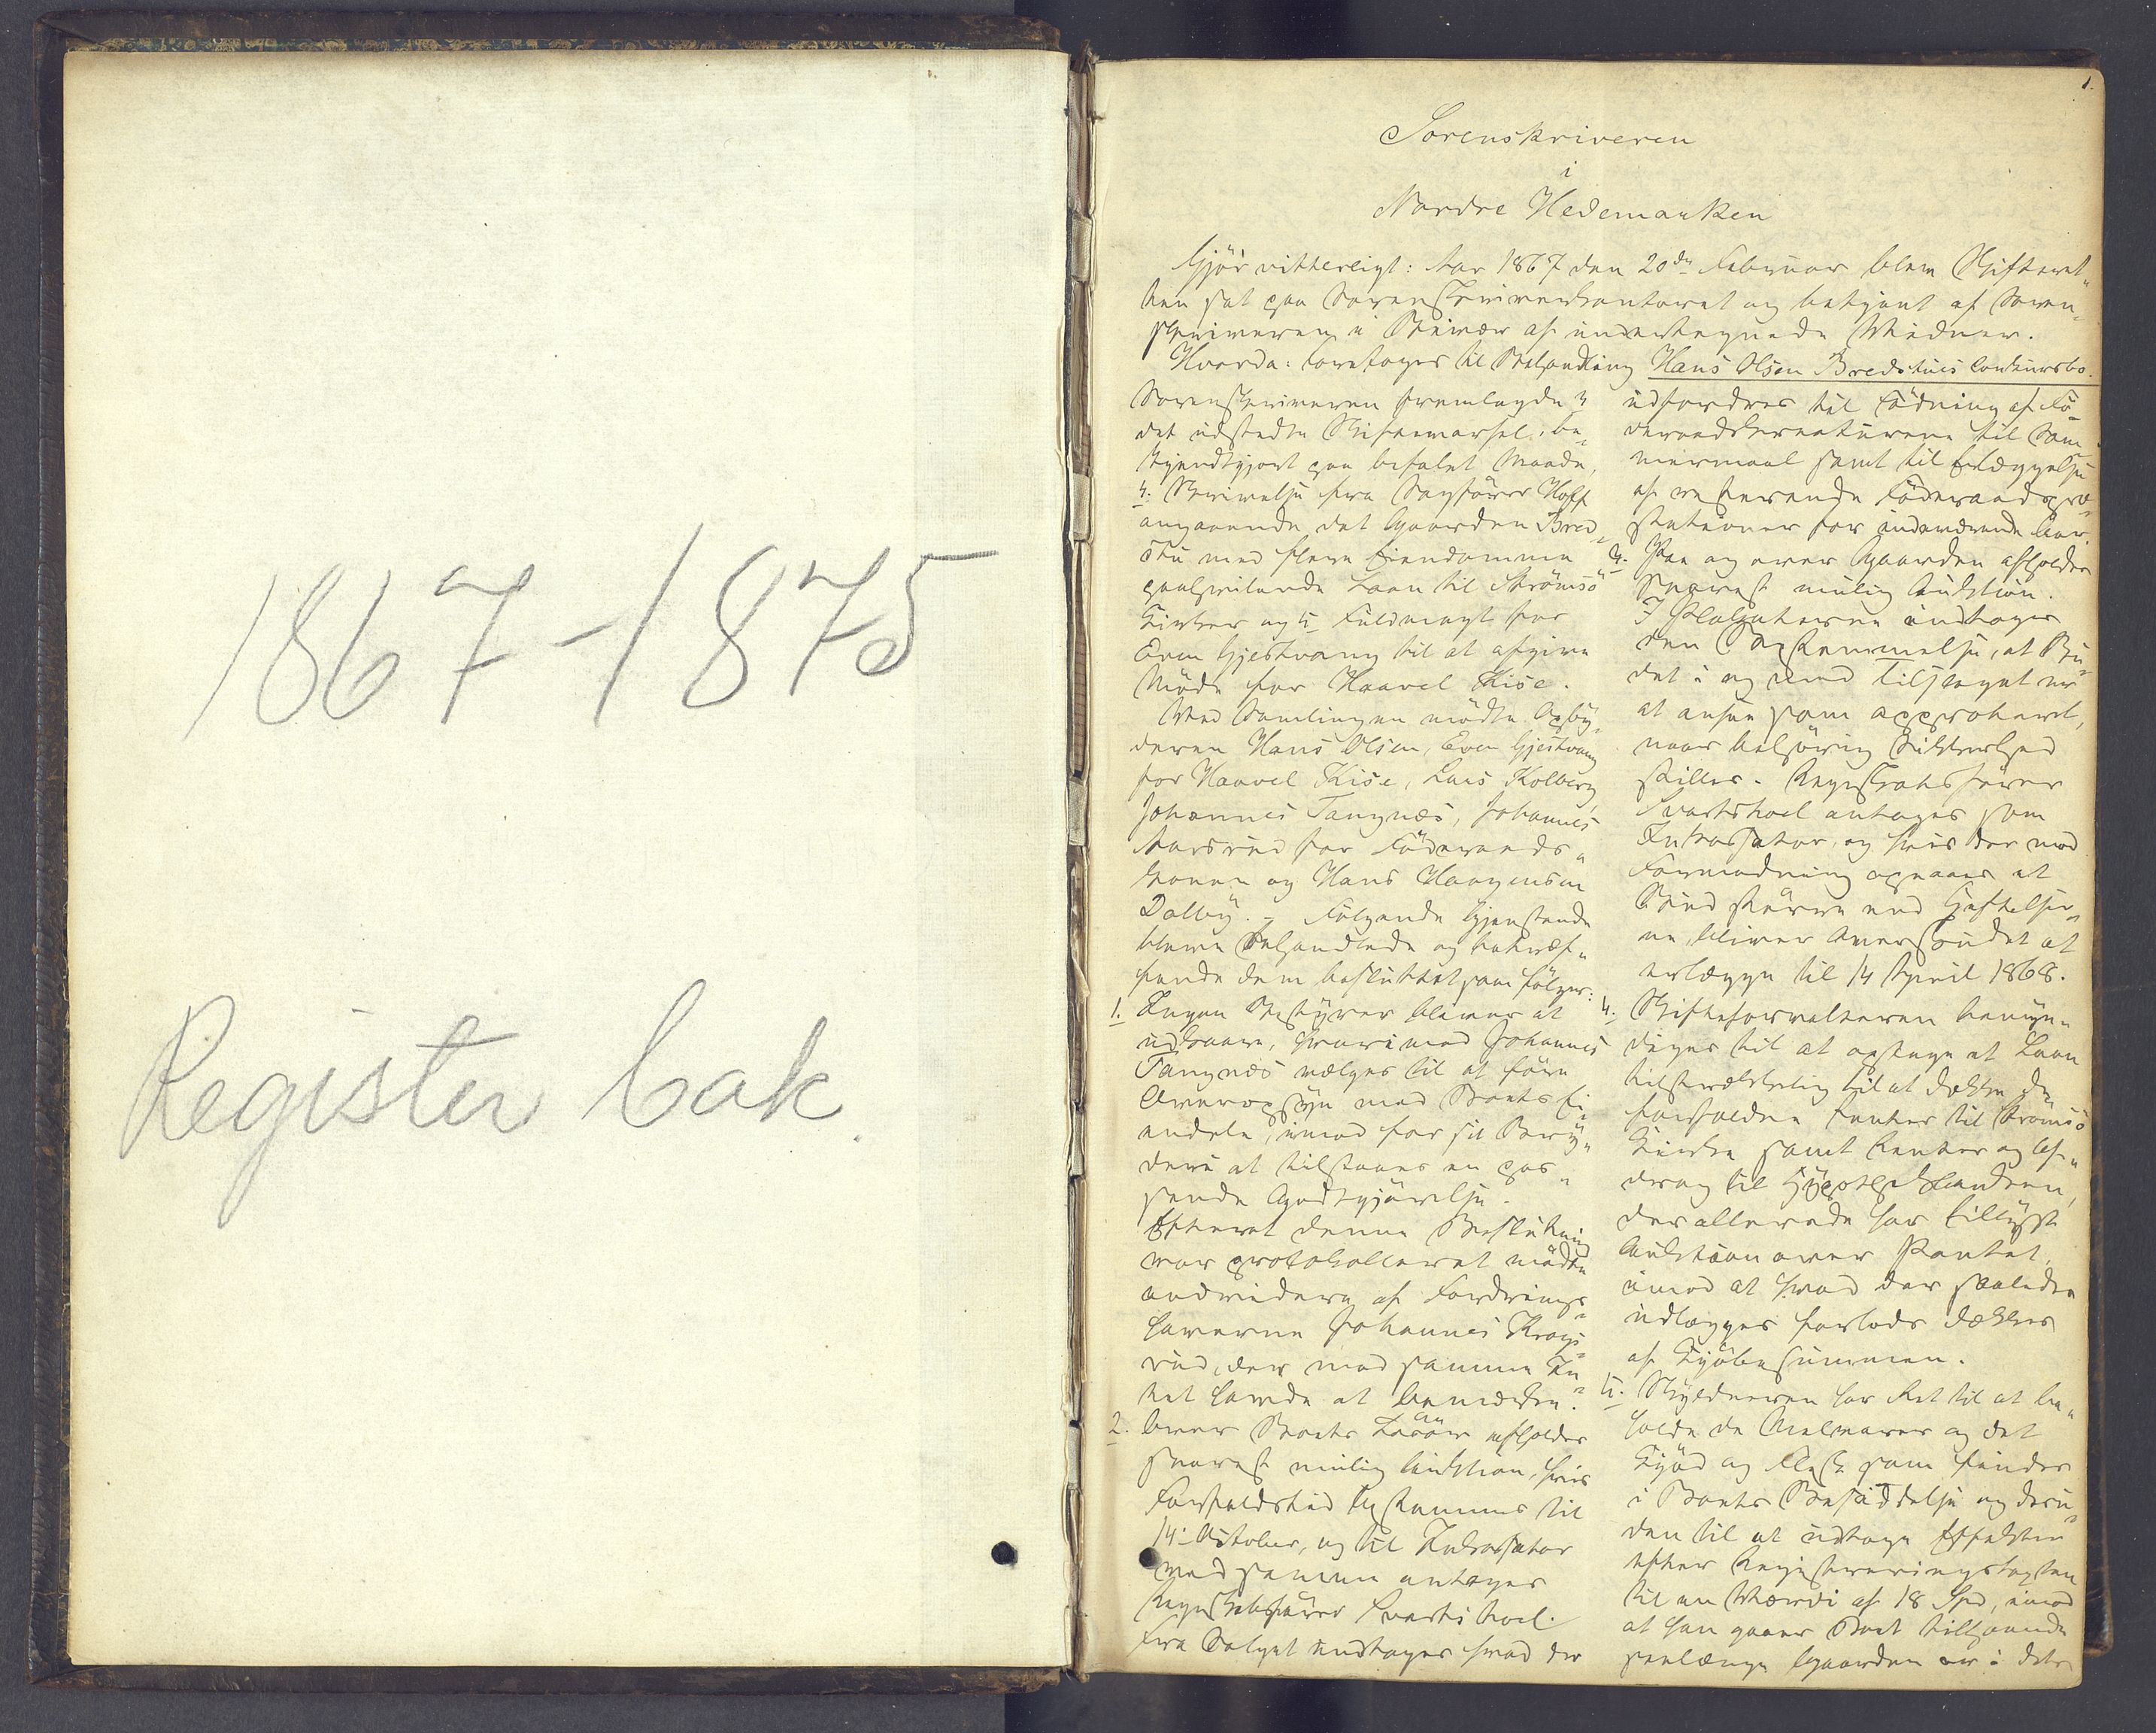 1867-1875
Register bak.
1.
Sorenskriveren
i
Nordre Hedemarken
Gjør vitterligt: Aar 1867 den 20de Februar blev Skifteret„
ten sat paa Sorenskriverkontoret og betjent af Soren„
skriveren i Overvær af undertegnede Vidner.
Hvorda: foretoges til Behandling Hans Olsen Bredstues Concursbo.
Sorenskriveren fremlagde
det udstedte Skiftevarsel, be„
kjendtgjort paa befalet Maade,
4. Skrivelse fra Sagfører Hoff
angaaende det Gaarden Bred„
stu med flere Eiendomme
paahvilende Laan til Strømsø
Kirker og 5 Fuldmagt for
Even Gjestvang til at afgive
Møde for Haavel Kise.
Ved Samlingen mødte Opby„
deren Hans Olsen, Even Gjestvang
for Haavel Kise, Lars Kolberg,
Johannes Tangnæs, Johannes
Aarsrud for Föderaads„
konen og Hans Haagensen
Dalby. – Følgende Gjenstande
bleve behandlede og betræf„
fende dem besluttet som følger:
1. Ingen Bestyrer bliver at
udkaare, hvorimod Johannes
Tangnæs vælges til at føre
Overopsyn med Boets Ei„
endele, imod for sit Bery„
deri at tilstaaes en pas„
sende Godtgjørelse.
Efterat denne Beslutning
var protokolleret mødte
endvidere af Fordrings„
haverne Johannes Krags„
rud, der mod samme In„
tet havde at bemærke.
2. Over Boets Løsøre afholdes
snarest mulig Auktion, hvis
Forfaldstid bestemmes til
14 October, og til Inkassator
ved samme antages
Regnskabsfører Svartshoel.
Fra Salget undtages hvad der
udfordres til Födning af Fö„
deraadskreaturene til Som„
mermaal samt til Erlæggelse
af resterende Föderaadspræ„
stationer for indeværende Aar.
3. Paa og over Gaarden afholdes
snarest mulig Auktion.
I Plakaterne indtages
den Bestemmelse, at Bu„
det i og med Tilslaget er
at ansee som approberet,
naar behørig Sikkerhed
stilles. Regnskabsfører
Svartshoel antages som
Inkassator, og hvis der mod
Formodning opnaaes et
Bud større end Heftelser„
ne, bliver Overskudet at
erlægge til 14 April 1868.
4. Skifteforvalteren bemyn„
diges til at optage et Laan
tilstrækkelig til at dække de
forfaldne Renter til Strømsø
Kirke samt Renter og Af„
drag til Hypothekbanken,
der allerede har tillyst
Auktion over Pantet,
imod at hvad der saaledes
udlægges forlods dækkes
af Kjøbesummen.
5. Skyldneren har Ret til at be„
holde de Avlvarer og det
Kjød og Flesk som findes
i Boets Besiddelse og desu„
den til at udtage Effekter
efter Registreringstaxten
til en Værdi af 18 Spd, imod
at han gaaer Boet tilhaande
saalænge Gaarden er i dets